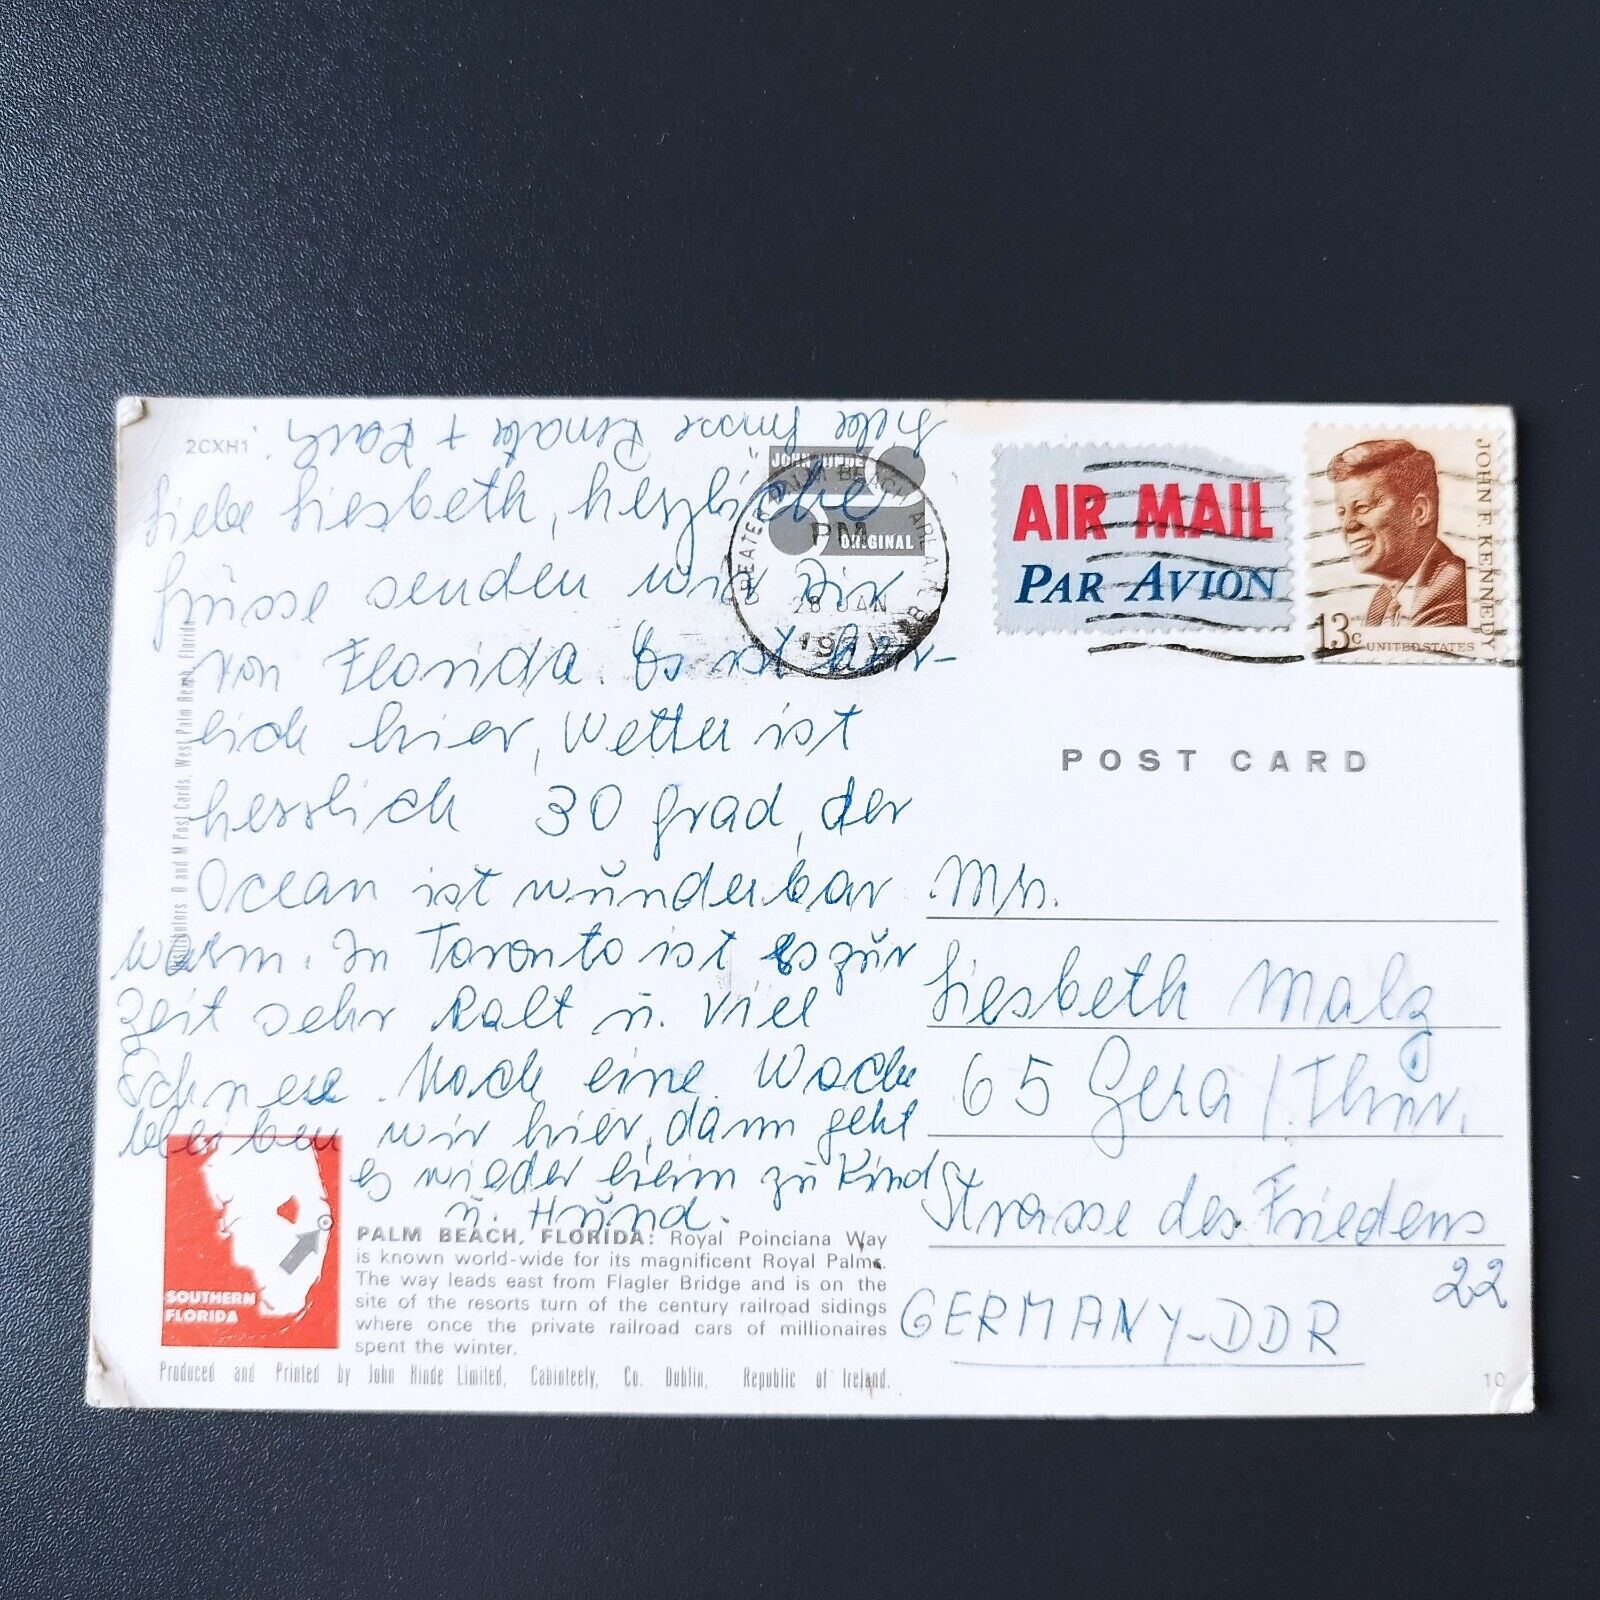 2CXH1
Liebe Liesbeth, herzliche
Grüsse senden wir Dir
von Florida. Es ist herr-
lich hier, Wetter ist
herrlich 30 Grad, der
Ocean ist wunderbar
warm. In Toronto ist es zur
Zeit sehr kalt u. viel
Schnee. Noch eine Woche
bleiben wir hier, dann geht
es wieder heim zu Kind
u. Hund.
Liebe Grüsse Renate +
JOHN HINDE
ORIGINAL
PM
28 JAN
AIR MAIL
PAR AVION
JOHN F. KENNEDY
13c
UNITED STATES
POST CARD
Mrs.
Liesbeth Malz
65 Gera / Thür.
Strasse des Friedens
22
GERMANY-DDR
Distributors D and M Post Cards, West Palm Beach, Florida
SOUTHERN
FLORIDA
PALM BEACH, FLORIDA: Royal Poinciana Way
is known world-wide for its magnificent Royal Palms.
The way leads east from Flagler Bridge and is on the
site of the resorts turn of the century railroad sidings
where once the private railroad cars of millionaires
spent the winter.
Produced and Printed by John Hinde Limited, Cabinteely, Co. Dublin, Republic of Ireland.
10